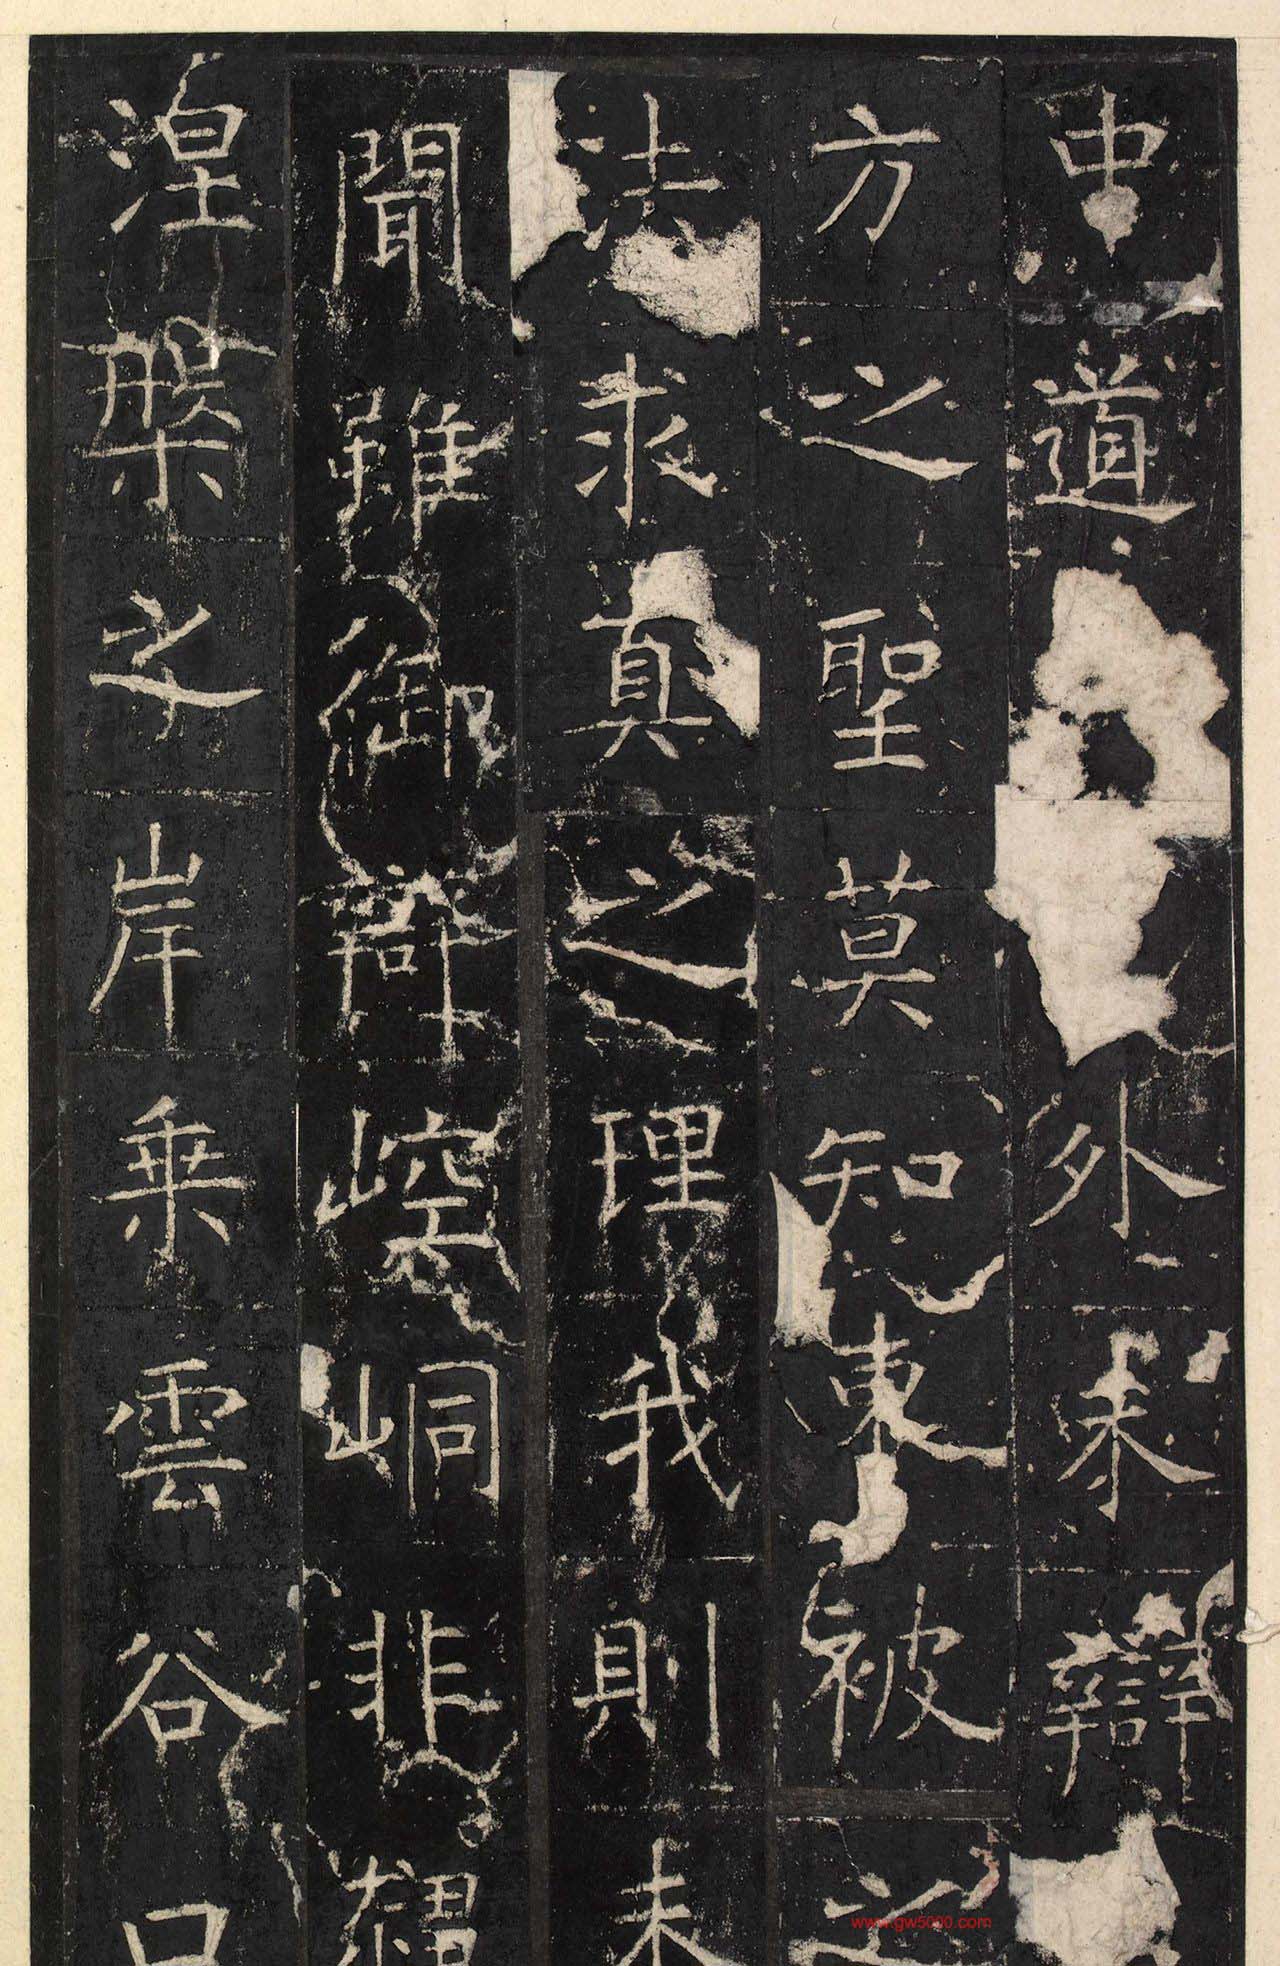 中道外未辯
方之聖莫知東被之
法求真之理我則未
聞雖御辯崆峒非
湼槃之岸乗雲谷口
www.gw5000.com